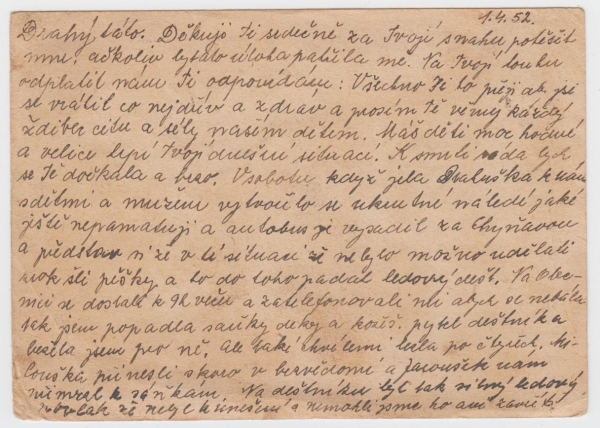 1.4.52.
Drahý táto. Děkuji Ti srdečně za Tvojí snahu potěšit
mne, ačkoliv by tato úloha patřila me. Na Tvojí touhu
odplatit nám Ti odpovídám: Všechno Ti to přeji aby jsi
se vrátil co nejdřív a zdráv a prosím Tě věnuj každý
ždibec citu a síly našim dětem. Máš děti moc hodné
a velice trpí Tvojí dnešní situací. K smrti ráda bych
se Tě dočkala a brzo. V sobotu když jela k nám
s dětmi a mužem vytvořilo se ukrutné náledí jaké
ještě nepamatuji a autobus je vysadil za Chyňavou
a představ si že v té situaci že nebylo možno udělati
krok šli pěšky a to do toho padal ledový déšť. Na
se dostali k 9 več. a zatelefonovali mi abych se nebála
tak jsem popadla saňky deky a kožíš. pytel deštník a
bežela jsem pro ně. Ale také chvílemi lezla po čtyřech.
přinesli skoro v bezvědomí a Jaroušek nám
přimrzl k sáňkám. Na deštníku byl tak silný ledový
povlak že nebyl k unešení a nemohli jsme ho ani zavřít.